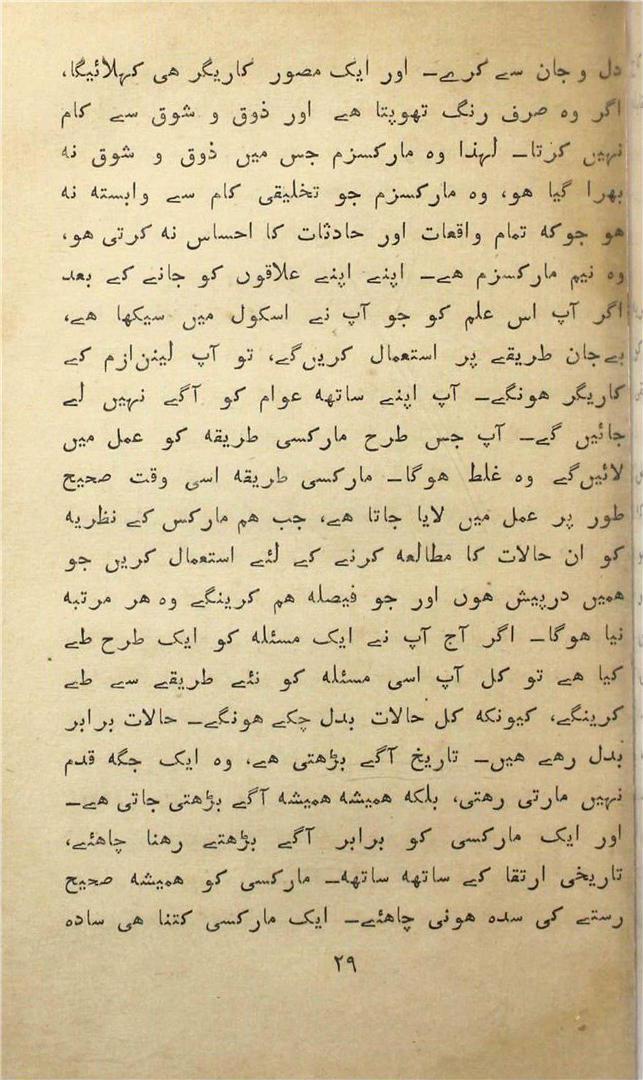 دل و جان سے کرے۔ اور ایک مصور کاریگر ھی کہلائیگا،
اگر وہ صرف رنگ تھوپتا ھے اور ذوق و شوق سے کام
نہیں کرتا۔ لہذا وہ مارکسزم جس میں ذوق و شوق نہ
بھرا گیا ھو، وہ مارکسزم جو تخلیقی کام سے وابستہ نہ
ھو جوکہ تمام واقعات اور حادثات کا احساس نہ کرتی ھو،
وہ نیم مارکسزم ھے۔ اپنے اپنے علاقوں کو جانے کے بعد
اگر آپ اس علم کو جو آپ نے اسکول میں سیکھا ھے،
بےجان طریقے پر استعمال کریں گے، تو آپ لینن ازم کے
کاریگر ھونگے۔ آپ اپنے ساتھ عوام کو آگے نہیں لے
جائیں گے۔ آپ جس طرح مارکسی طریقہ کو عمل میں
لائیں گے وہ غلط ھوگا۔ مارکسی طریقہ اسی وقت صحیح
طور پر عمل میں لایا جاتا ھے، جب ھم مارکس کے نظریہ
کو ان حالات کا مطالعہ کرنے کے لئے استعمال کریں جو
ھمیں درپیش ھوں اور جو فیصلہ ھم کرینگے وہ ھر مرتبہ
نیا ھوگا۔ اگر آج آپ نے ایک مسئلہ کو ایک طرح طے
کیا ھے تو کل آپ اسی مسئلہ کو نئے طریقے سے طے
کرینگے، کیونکہ کل حالات بدل چکے ھونگے۔ حالات برابر
بدل رھے ھیں۔ تاریخ آگے بڑھتی ھے، وہ ایک جگہ قدم
نہیں مارتی رھتی، بلکہ ھمیشہ ھمیشہ آگے بڑھتی جاتی ھے۔
اور ایک مارکسی کو برابر آگے بڑھتے رھنا چاھئے،
تاریخی ارتقا کے ساتھ ساتھ۔ مارکسی کو ھمیشہ صحیح
رستے کی سدہ ھونی چاھئے۔ ایک مارکسی کتنا ھی سادہ
۲۹